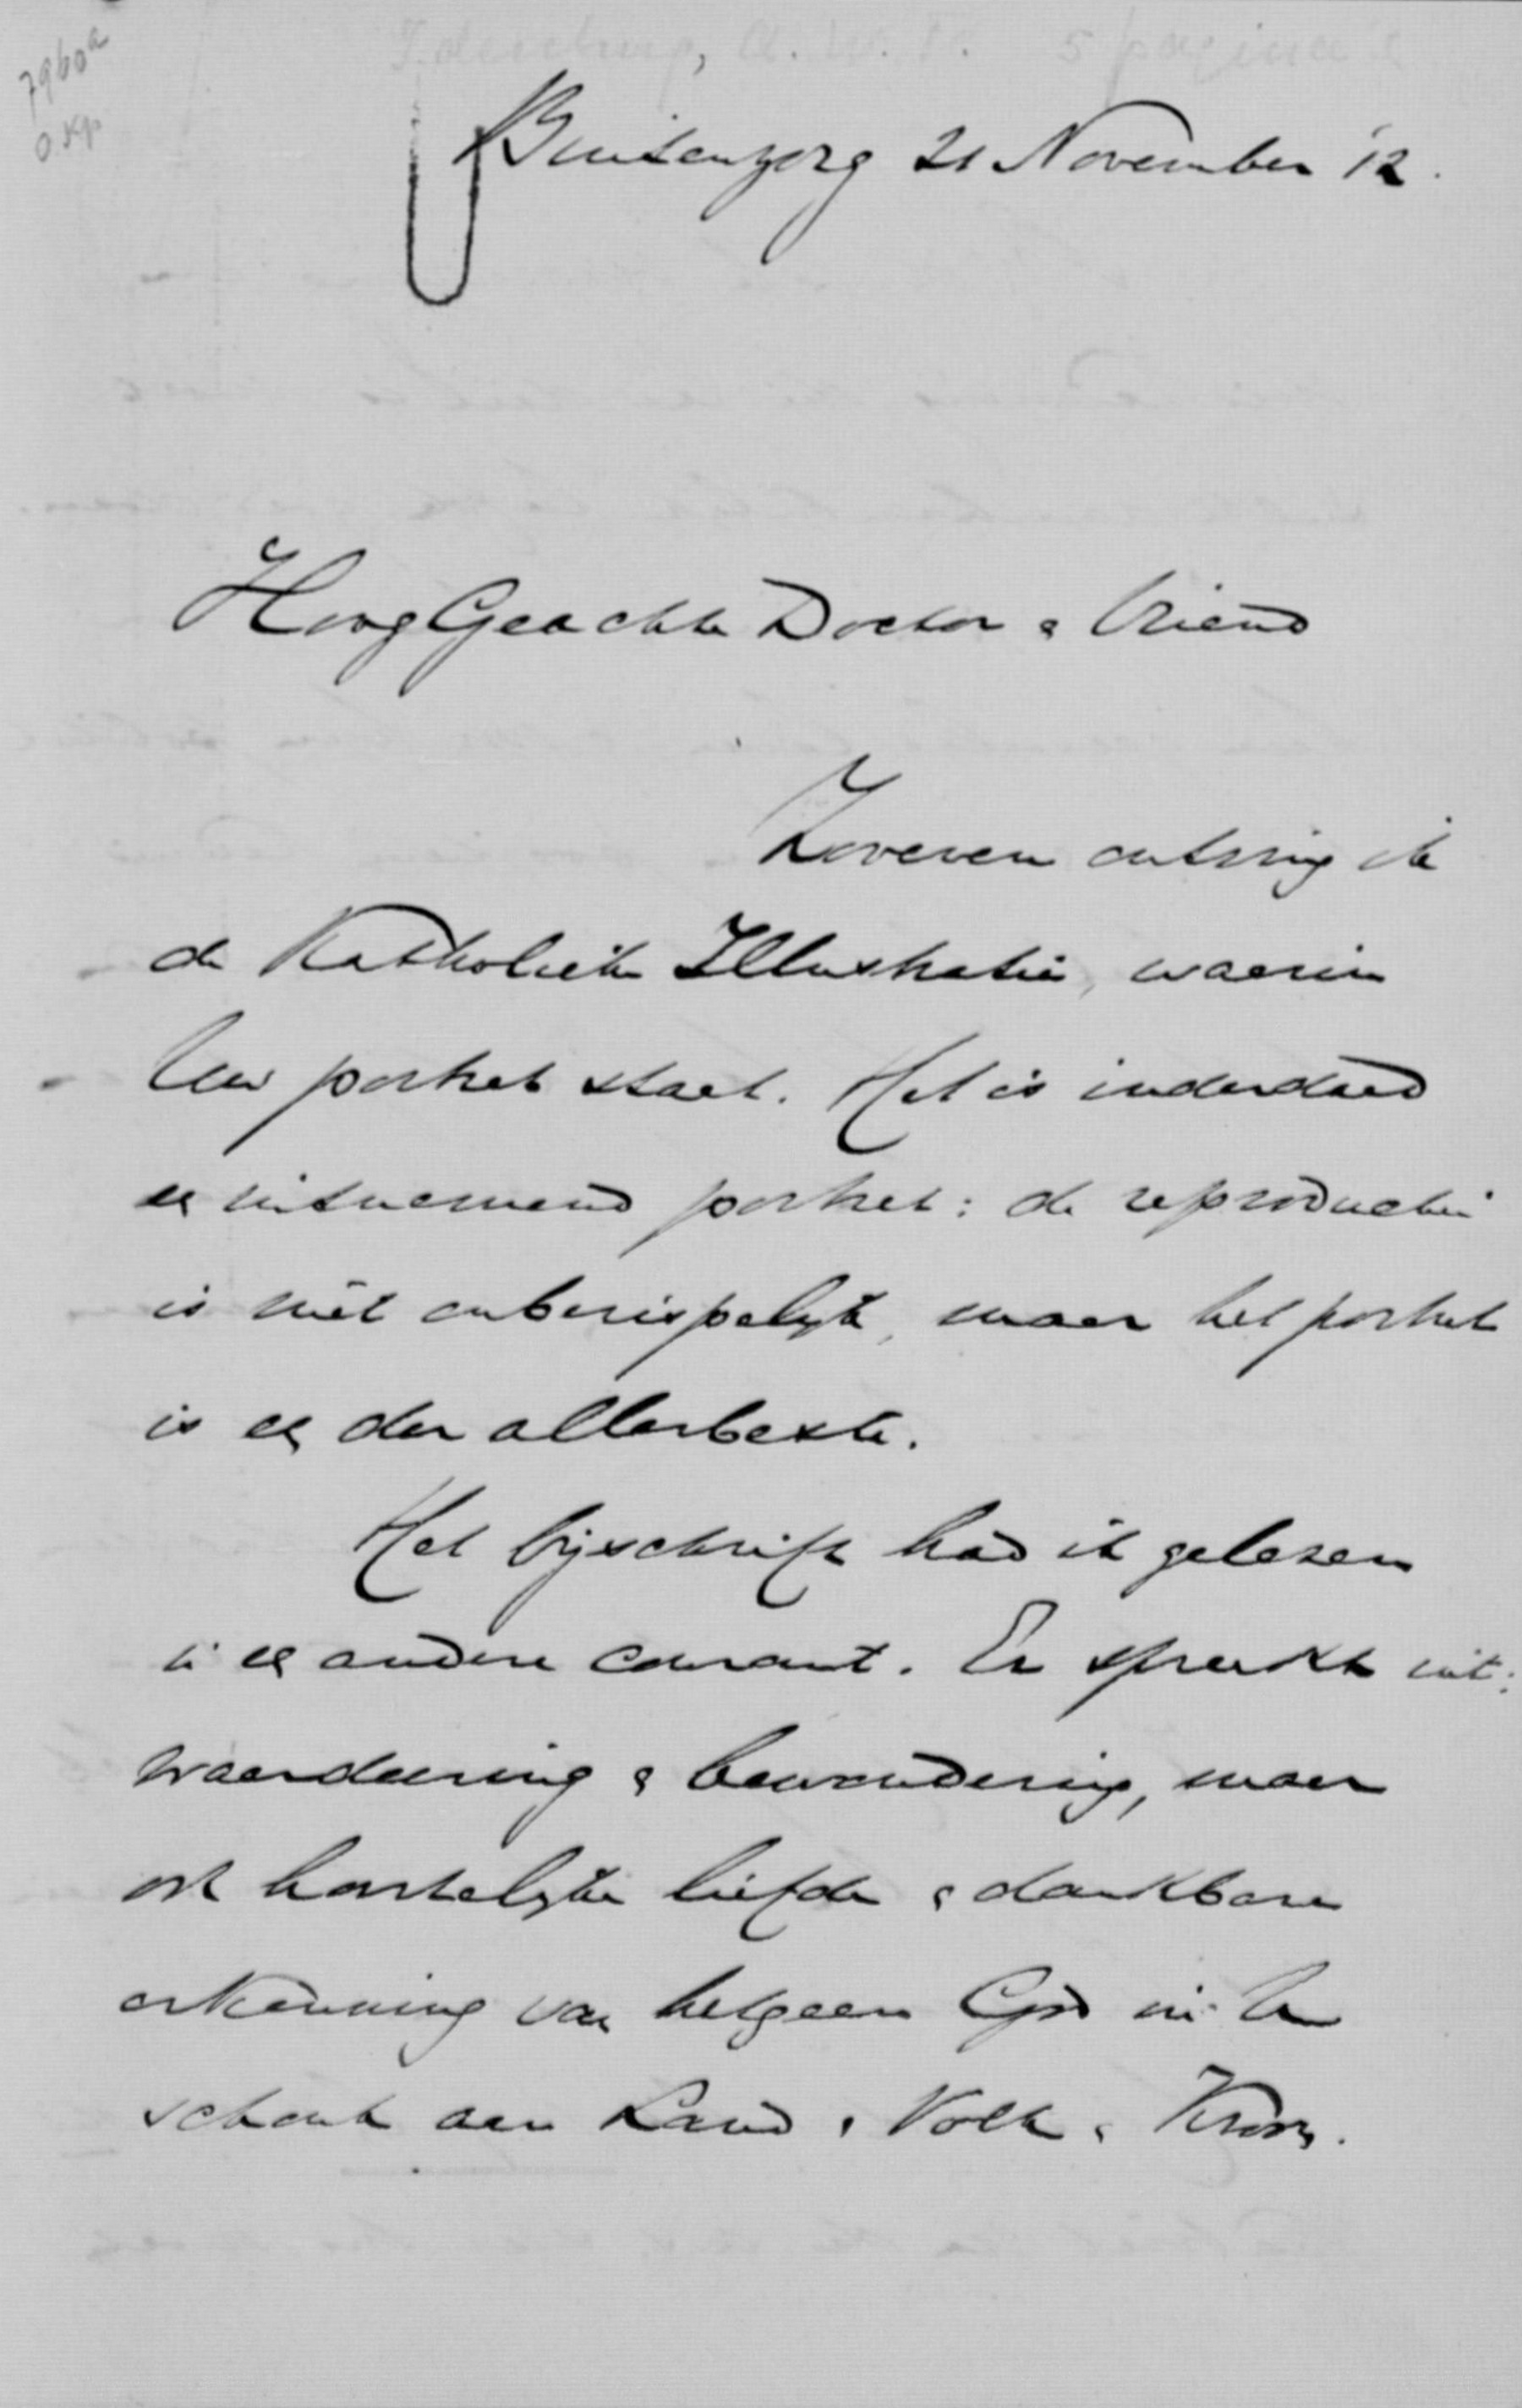 7960a
O Kp.
Idenburg, A. W. F. 5 pagina's
Buitenzorg 21 November '12.
HoogGeachte Doctor & Vriend
Zooeven ontving ik
de Katholieke Illustratie, waarin
Uw portret staat. Het is inderdaad
een uitnemend portret: de reproductie
is niet onberispelijk, maar het portret
is een der allerbeste.
Het bijschrift had ik gelezen
in een andere courant. Er spreekt uit:
waardeering & bewondering, maar
ook hartelijke liefde & dankbare
erkenning van hetgeen God in U
schonk aan Land & Volk & Kroon.